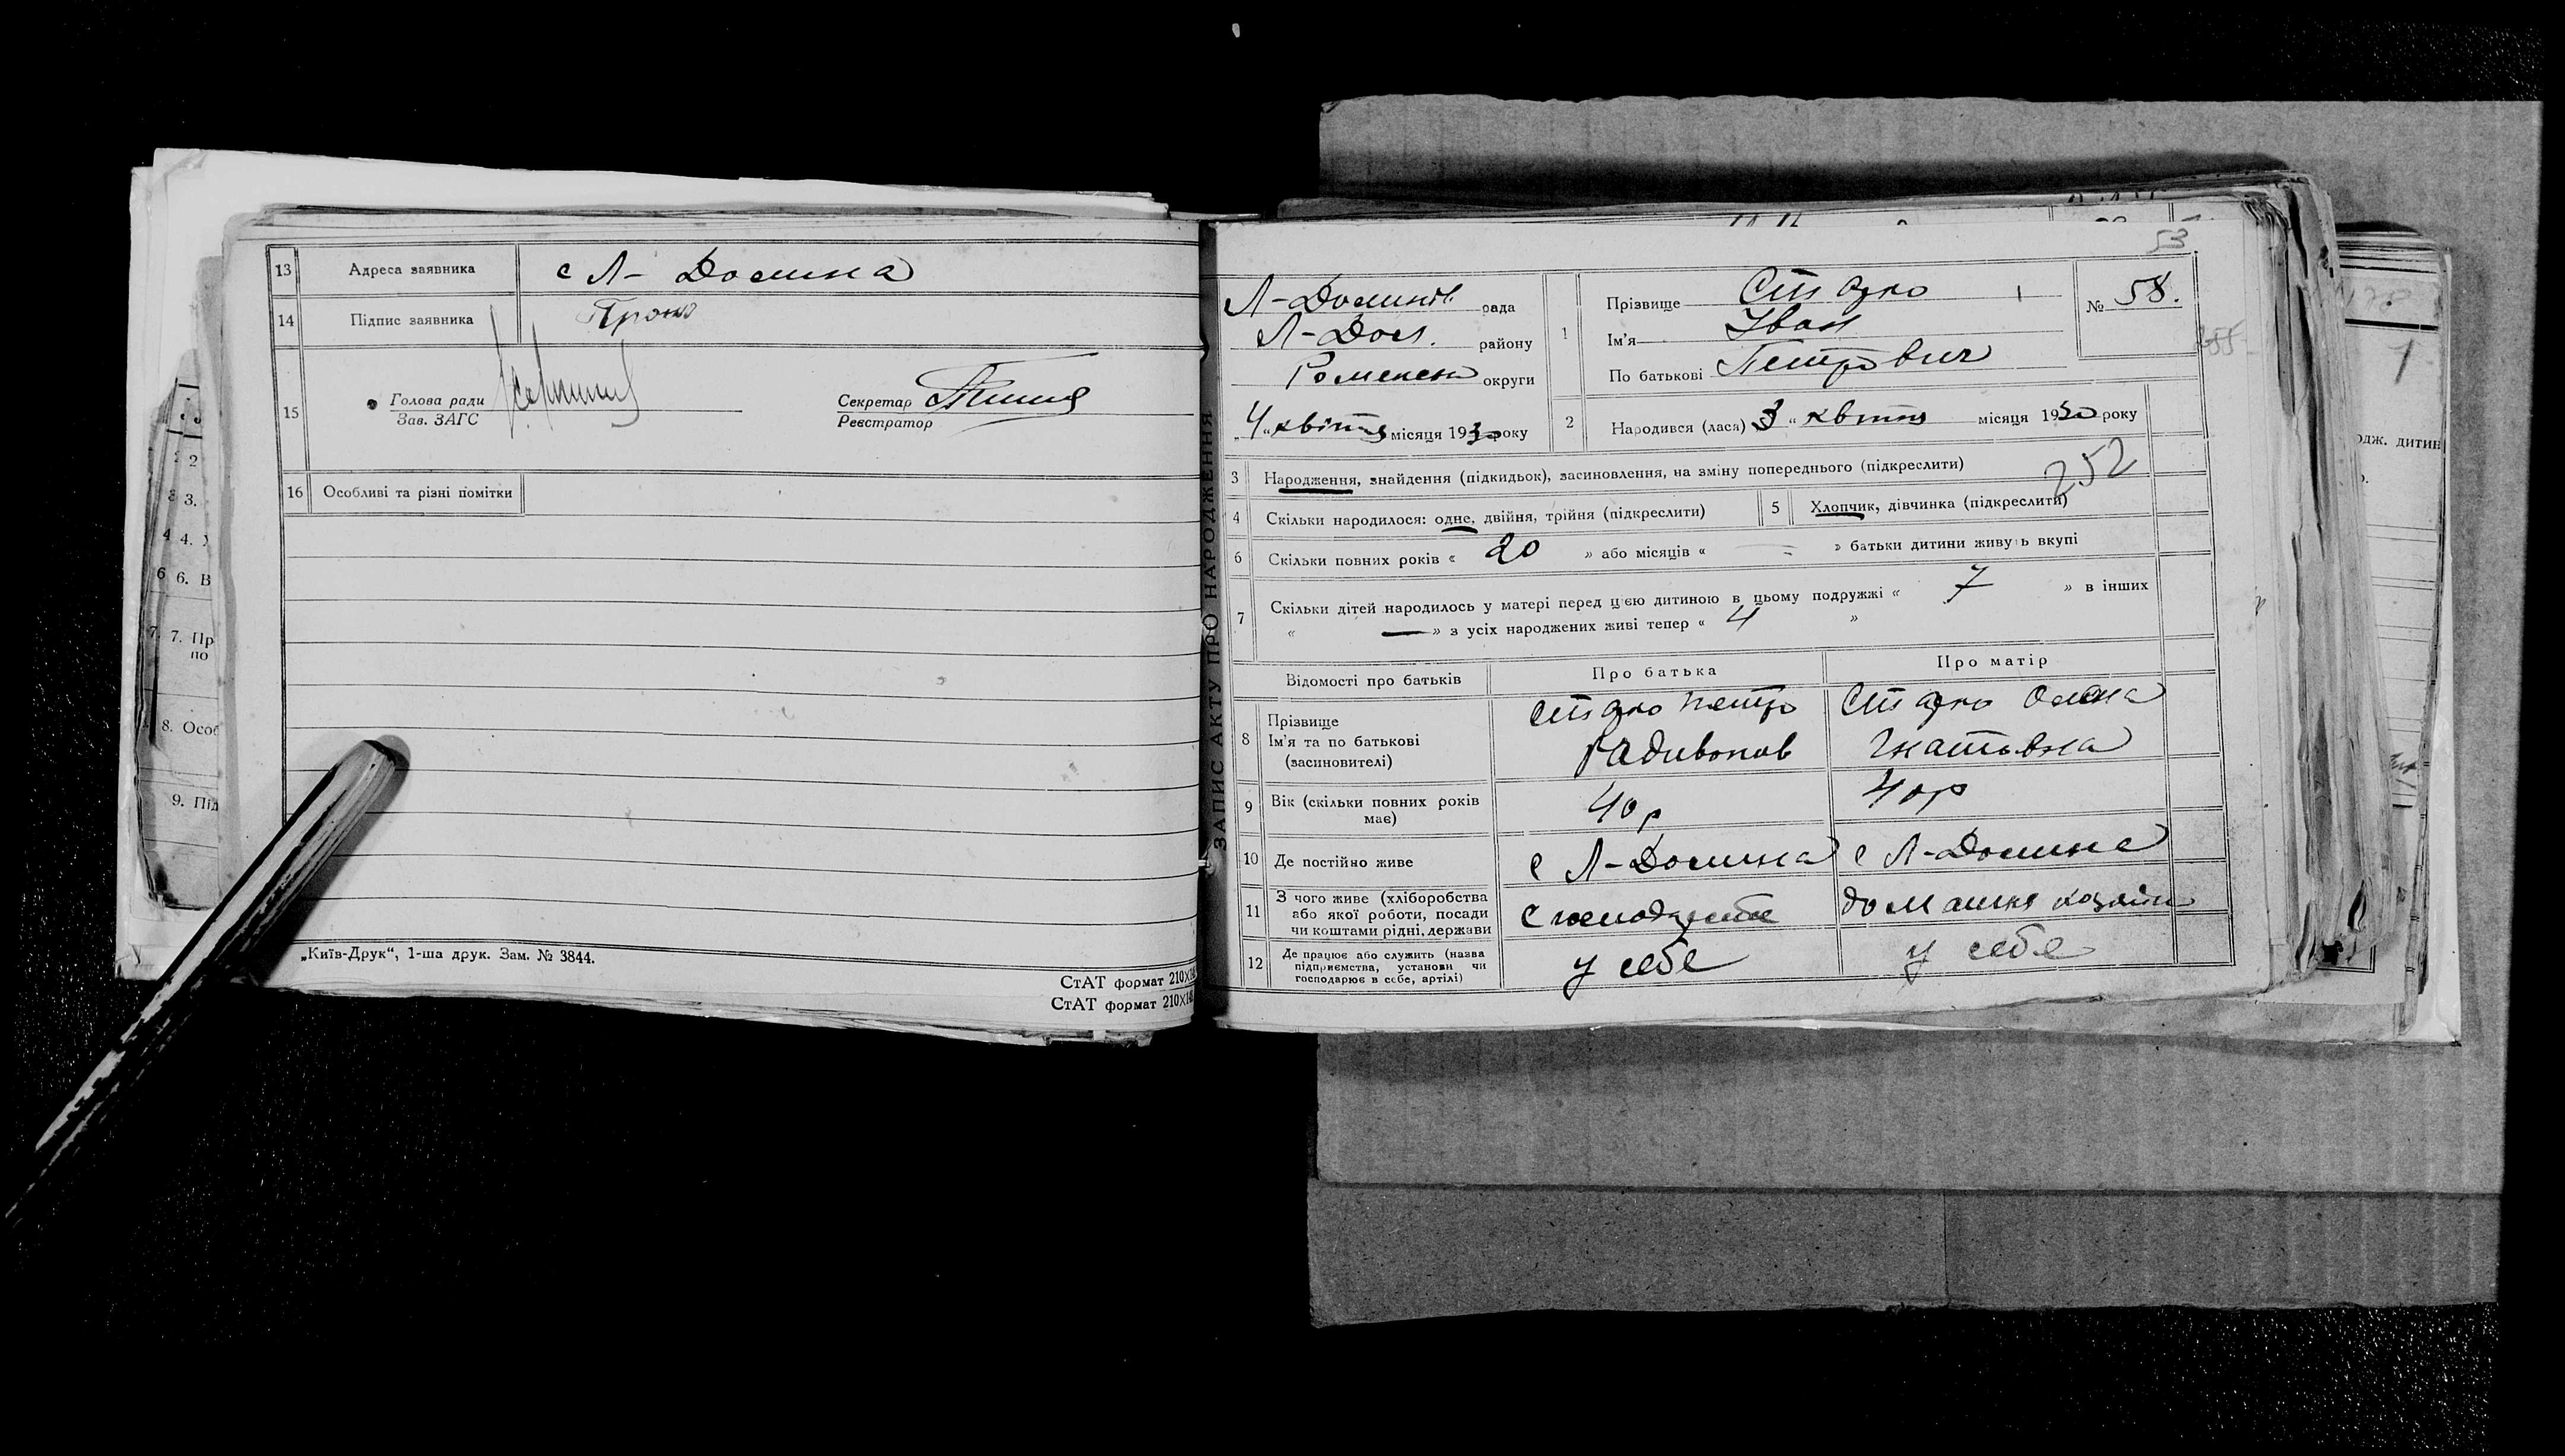 13 Адреса заявника с Л- Долина
14 Підпис заявника
15 Голова ради
Зав. ЗАГС
Секретар
Реєстратор
16 Особливі та різні помітки
„Київ-Друк“, 1-ша друк. Зам. № 3844.
СтАТ формат 210×
СтАТ формат 210×
2
3.
4.
6. В
7. Пр
по
8. Особ
9. Під
ЗАПИС АКТУ ПРО НАРОДЖЕННЯ
53
Л-Долинсь. рада
Л-Дол. району
Роменськ округи
„4“ квітня місяця 1930 року
1 Прізвище
Ім'я Іван
По батькові Петрович
№ 58.
2 Народився (лася) 3 “ квітня місяця 1930 року
3 Народження, знайдення (підкидьок), засиновлення, на зміну попереднього (підкреслити)
252
4 Скільки народилося: одне, двійня, трійня (підкреслити)
5 Хлопчик, дівчинка (підкреслити)
6 Скільки повних років « 20 » або місяців « — » батьки дитини живуть вкупі
7 Скільки дітей народилось у матері перед цією дитиною в цьому подружжі « 7 » в інших
« — » з усіх народжених живі тепер « 4 »
Відомості про батьків Про батька Про матір
8 Прізвище
Ім'я та по батькові
(засиновителі)
Петро
Радивонов
Олена
Гнатьвна
9 Вік (скільки повних років
має)
40 р
40 р
10 Де постійно живе с Л-Долина с Л-Долина
11 З чого живе (хліборобства
або якої роботи, посади
чи коштами рідні, держави
домашня
12 Де працює або служить (назва
підприємства, установи чи
господарює в себе, артілі)
у себе
у себе
одж. дитин